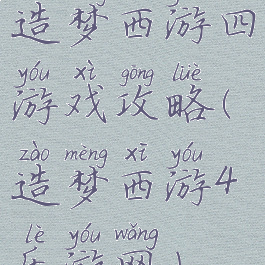 造梦西游四
yóu xì gōng lüè
游戏攻略(
zào mèng xī yóu
造梦西游4
lè yóu wǎng
乐游网)